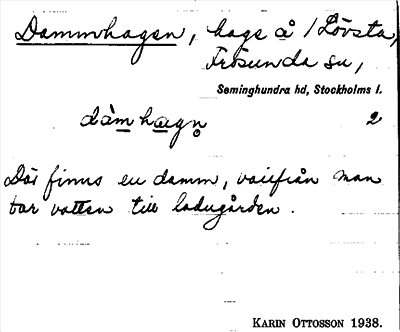 Dammhagen, hage å Lövsta,
Frösunda sn,
Seminghundra hd, Stockholms l.
dàmhagn̥ 2
Där finns en damm, varifrån man
tar vatten till ladugården.
KARIN OTTOSSON 1938.